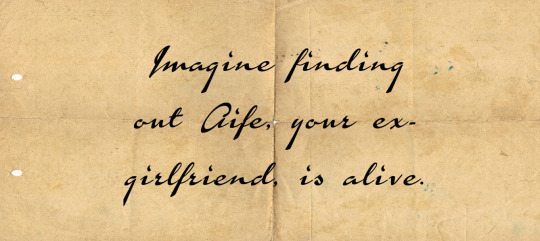 Imagine finding
out Aife, your ex-
girlfriend, is alive.